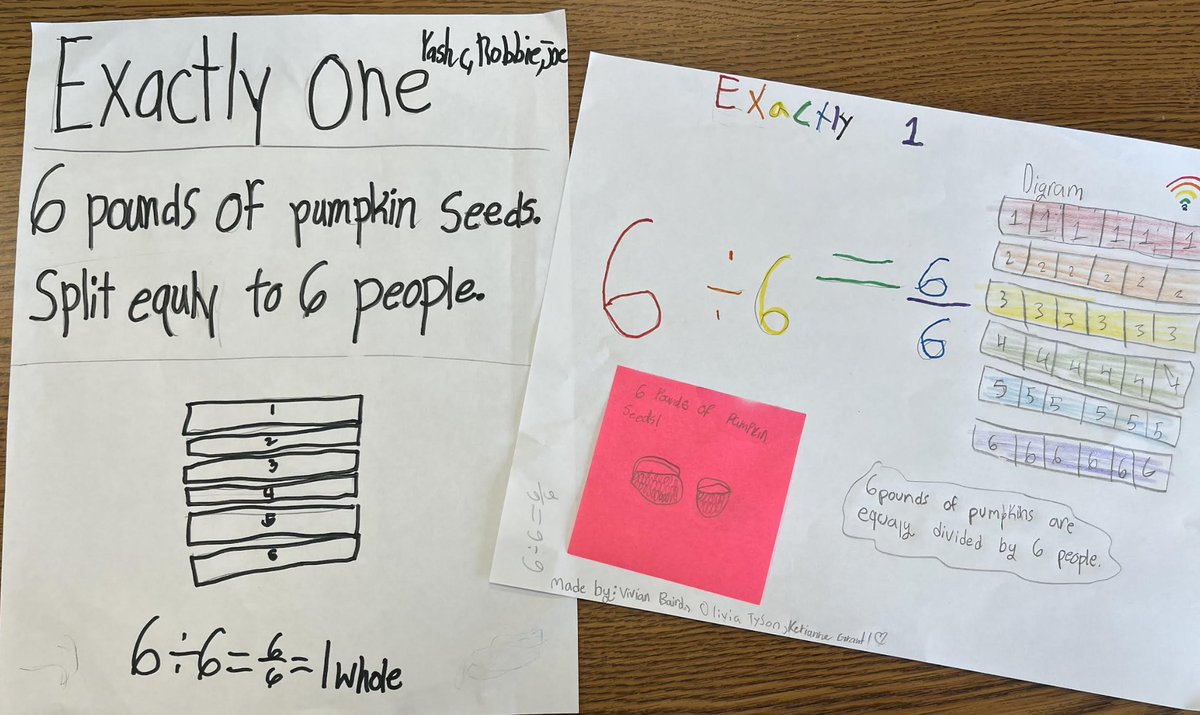 Exactly One
Yash C, Robbie, Joe
6 pounds of pumpkin seeds.
Split equly to 6 people.
1
2
3
4
5
6
6÷6=6/6=1 whole
Exactly 1
6 ÷ 6 = 6/6
Digram
1 1 1 1 1 1
2 2 2 2 2 2
3 3 3 3 3 3
4 4 4 4 4 4
5 5 5 5 5 5
6 6 6 6 6 6
6 Pounds of Pumpkin
Seeds!
6pounds of pumpkins are
equaly divided by 6 people.
6÷6=6/6
made by: Vivian Baird, Olivia Tyson,